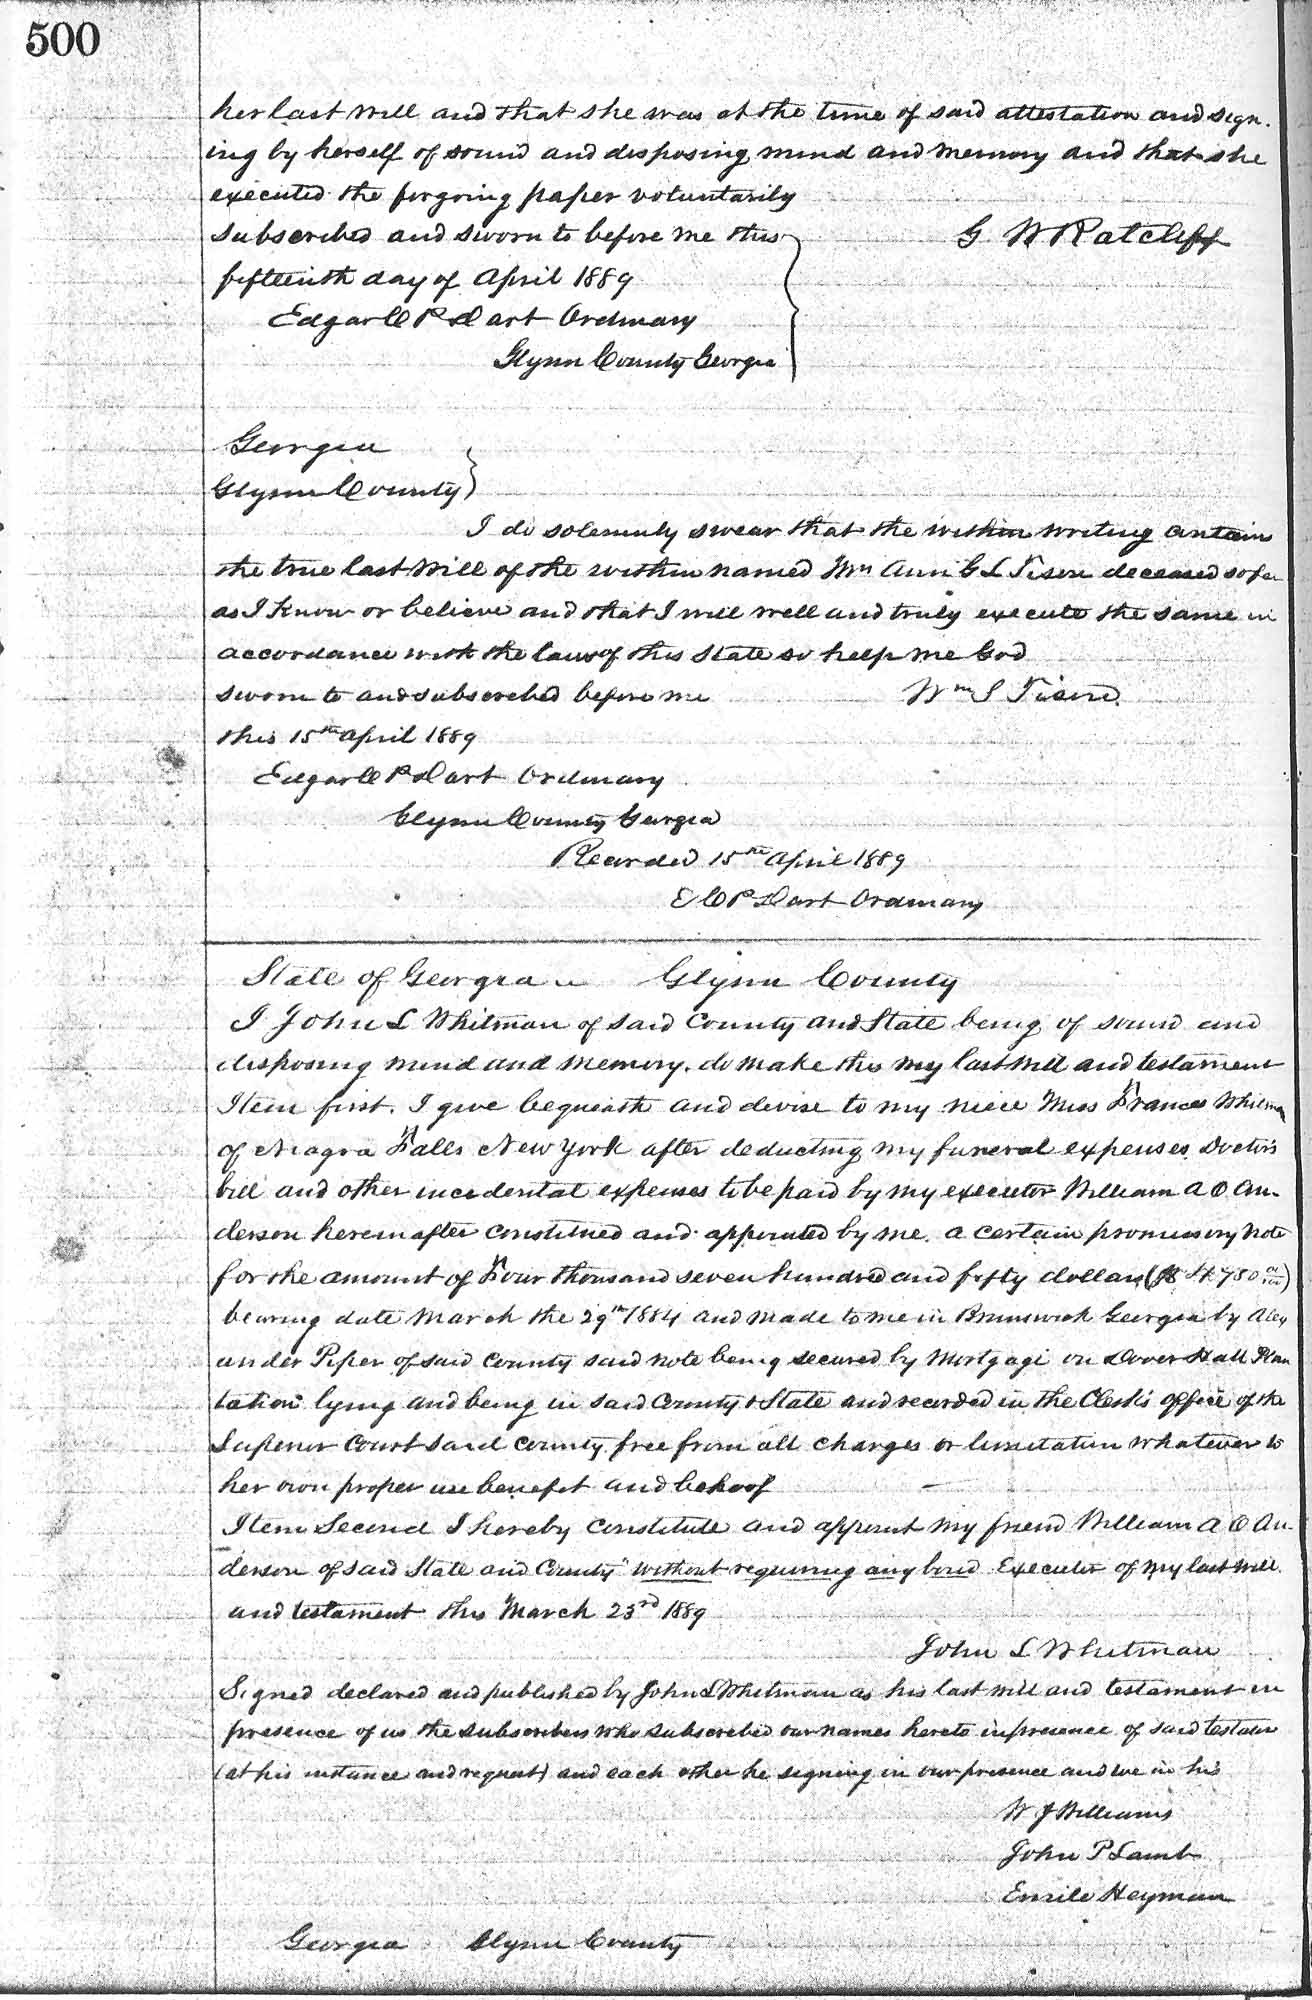 500
her last will and that she was at the time of said attestation and sign-
ing by herself of sound and disposing mind and memory and that she
executed the forgoing paper voluntarily
Subscribed and sworn to before me this
G W Ratcliff
fifteenth day of April 1889
Edgar C P Dart Ordinary
Glynn County Georgia
Georgia
Glynn County
I do solemnly swear that the within writing contains
the true last will of the within named Ann G L Tison deceased so far
as I know or believe and that I will well and truly execute the same in
accordance with the laws of this State so help me God
sworn to and subscribed before me
Wm S Tison
this 15th April 1889
Edgar C P Dart Ordinary
Glynn County Georgia
Recorded 15th April 1889
E C P Dart Ordinary
State of Georgia Glynn County
I John L Whitman of said County and State being of sound and
disposing mind and memory. do make this my last will and testament
Item first. I give bequeath and devise to my niece Miss Frances Whitman
of Niagra Falls New York after deducting my funeral expenses Doctor's
bill and other incidental expenses to be paid by my executor William A O An-
derson hereinafter constitued and appointed by me. a certain promissory note
for the amount of Four thousand seven hundred and fifty dollars ($4.750 00/100)
bearing date March the 29th 1884 and made to me in Brunswick Georgia by Alex
ander Piper of said County said note being secured by Mortgage on Dover Hall Plan
tation lying and being in said County & State and recorded in the Clerk's office of the
Superior Court said County free from all charges or limitation whatever to
her own proper use benefit and behoof
Item Second I hereby constitute and appoint my friend William A O An-
derson of said State and County "without requiring any bond Executor of my last will
and testament this March 23rd 1889
John L Whitman
Signed declared and published by John L Whitman as his last will and testament in
presence of us the subscribers who subscribed our names hereto in presence of said testator
(at his instance and request) and each other he signing in our presence and we in his
W J Williams
John P Lamb
Emile Heyman
Georgia Glynn County